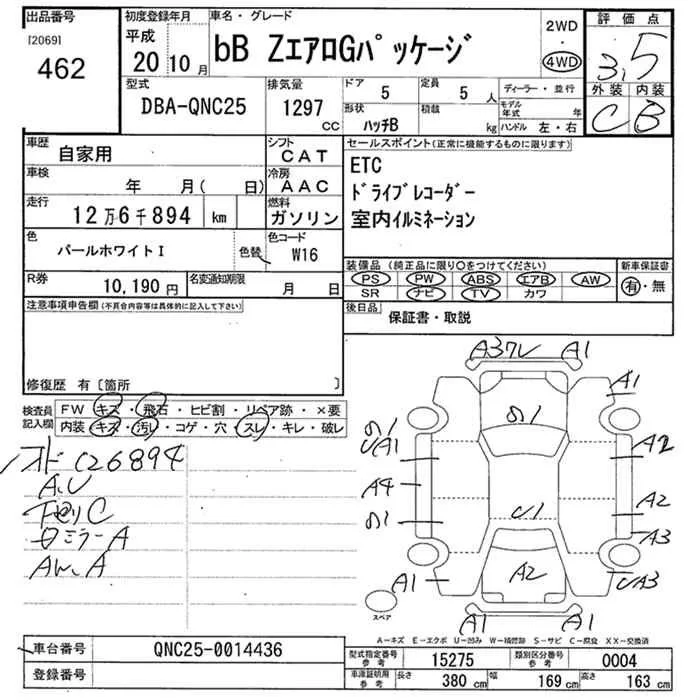 出品番号
[2069]
462
初度登録年月
平成
20 10 月
車名・グレード
bB ZエアロGパッケージ
2WD
・
4WD
評価点
3.5
外装 内装
C B
型式
DBA-QNC25
排気量
1297
CC
ドア
5
定員
5 人
形状
ハッチB
積載
kg
ディーラー・並行
モデル年式 年
ハンドル 左・右
車歴
自家用
シフト
CAT
車検
年 月( 日)
冷房
AAC
走行
12万6千894 km
燃料
ガソリン
色
パールホワイトI
色替
色コード
W16
R券
10,190 円
名変通知期限
月 日
セールスポイント(正常に機能するものに限ります)
ETC
ドライブレコーダー
室内イルミネーション
装備品 (純正品に限り○をつけてください)
PS PW ABS エアB AW
SR ナビ TV カワ
新車保証書
有・無
後日品
保証書・取説
注意事項申告欄(不具合内容等は具体的に記入して下さい)
修復歴 有〔箇所 〕
検査員記入欄
FW キズ・飛石・ヒビ割・リペア跡・×要
内装 キズ・汚レ・コゲ・穴・スレ・キレ・破レ
126894
A.U
C
ミラーA
A
A1
A1
A1
A2
A4
A2
A3
A2
A1
UA3
A1
A1
U1
スペア
A-キズ E-エクボ U-凹み W-補修跡 S-サビ C-腐食 XX-交換済
車台番号
QNC25-0014436
登録番号
型式指定番号 参考
15275
類別区分番号 参考
0004
車庫証明用 参考
長さ 380 cm
幅 169 cm
高さ 163 cm